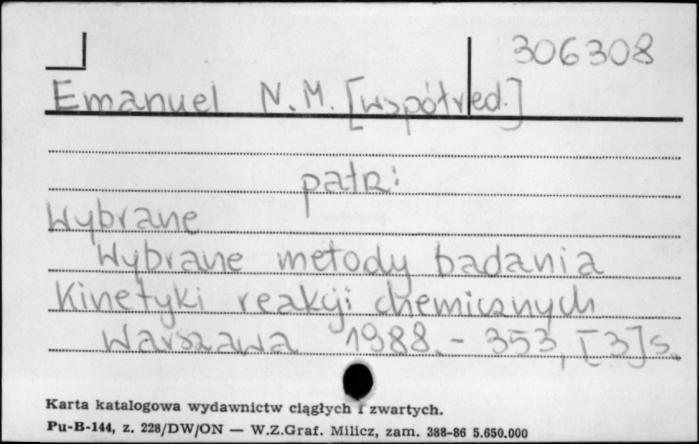 306308
Emanuel N.M. [współred.]
patrz:
Wybrane
Wybrane metody badania
Kinetyki reakcji chemicznych
Warszawa 1988. - 353, [3] s.
Karta katalogowa wydawnictw ciągłych i zwartych.
Pu-B-144, z. 228/DW/ON — W.Z.Graf. Milicz, zam. 388-86 5.650.000